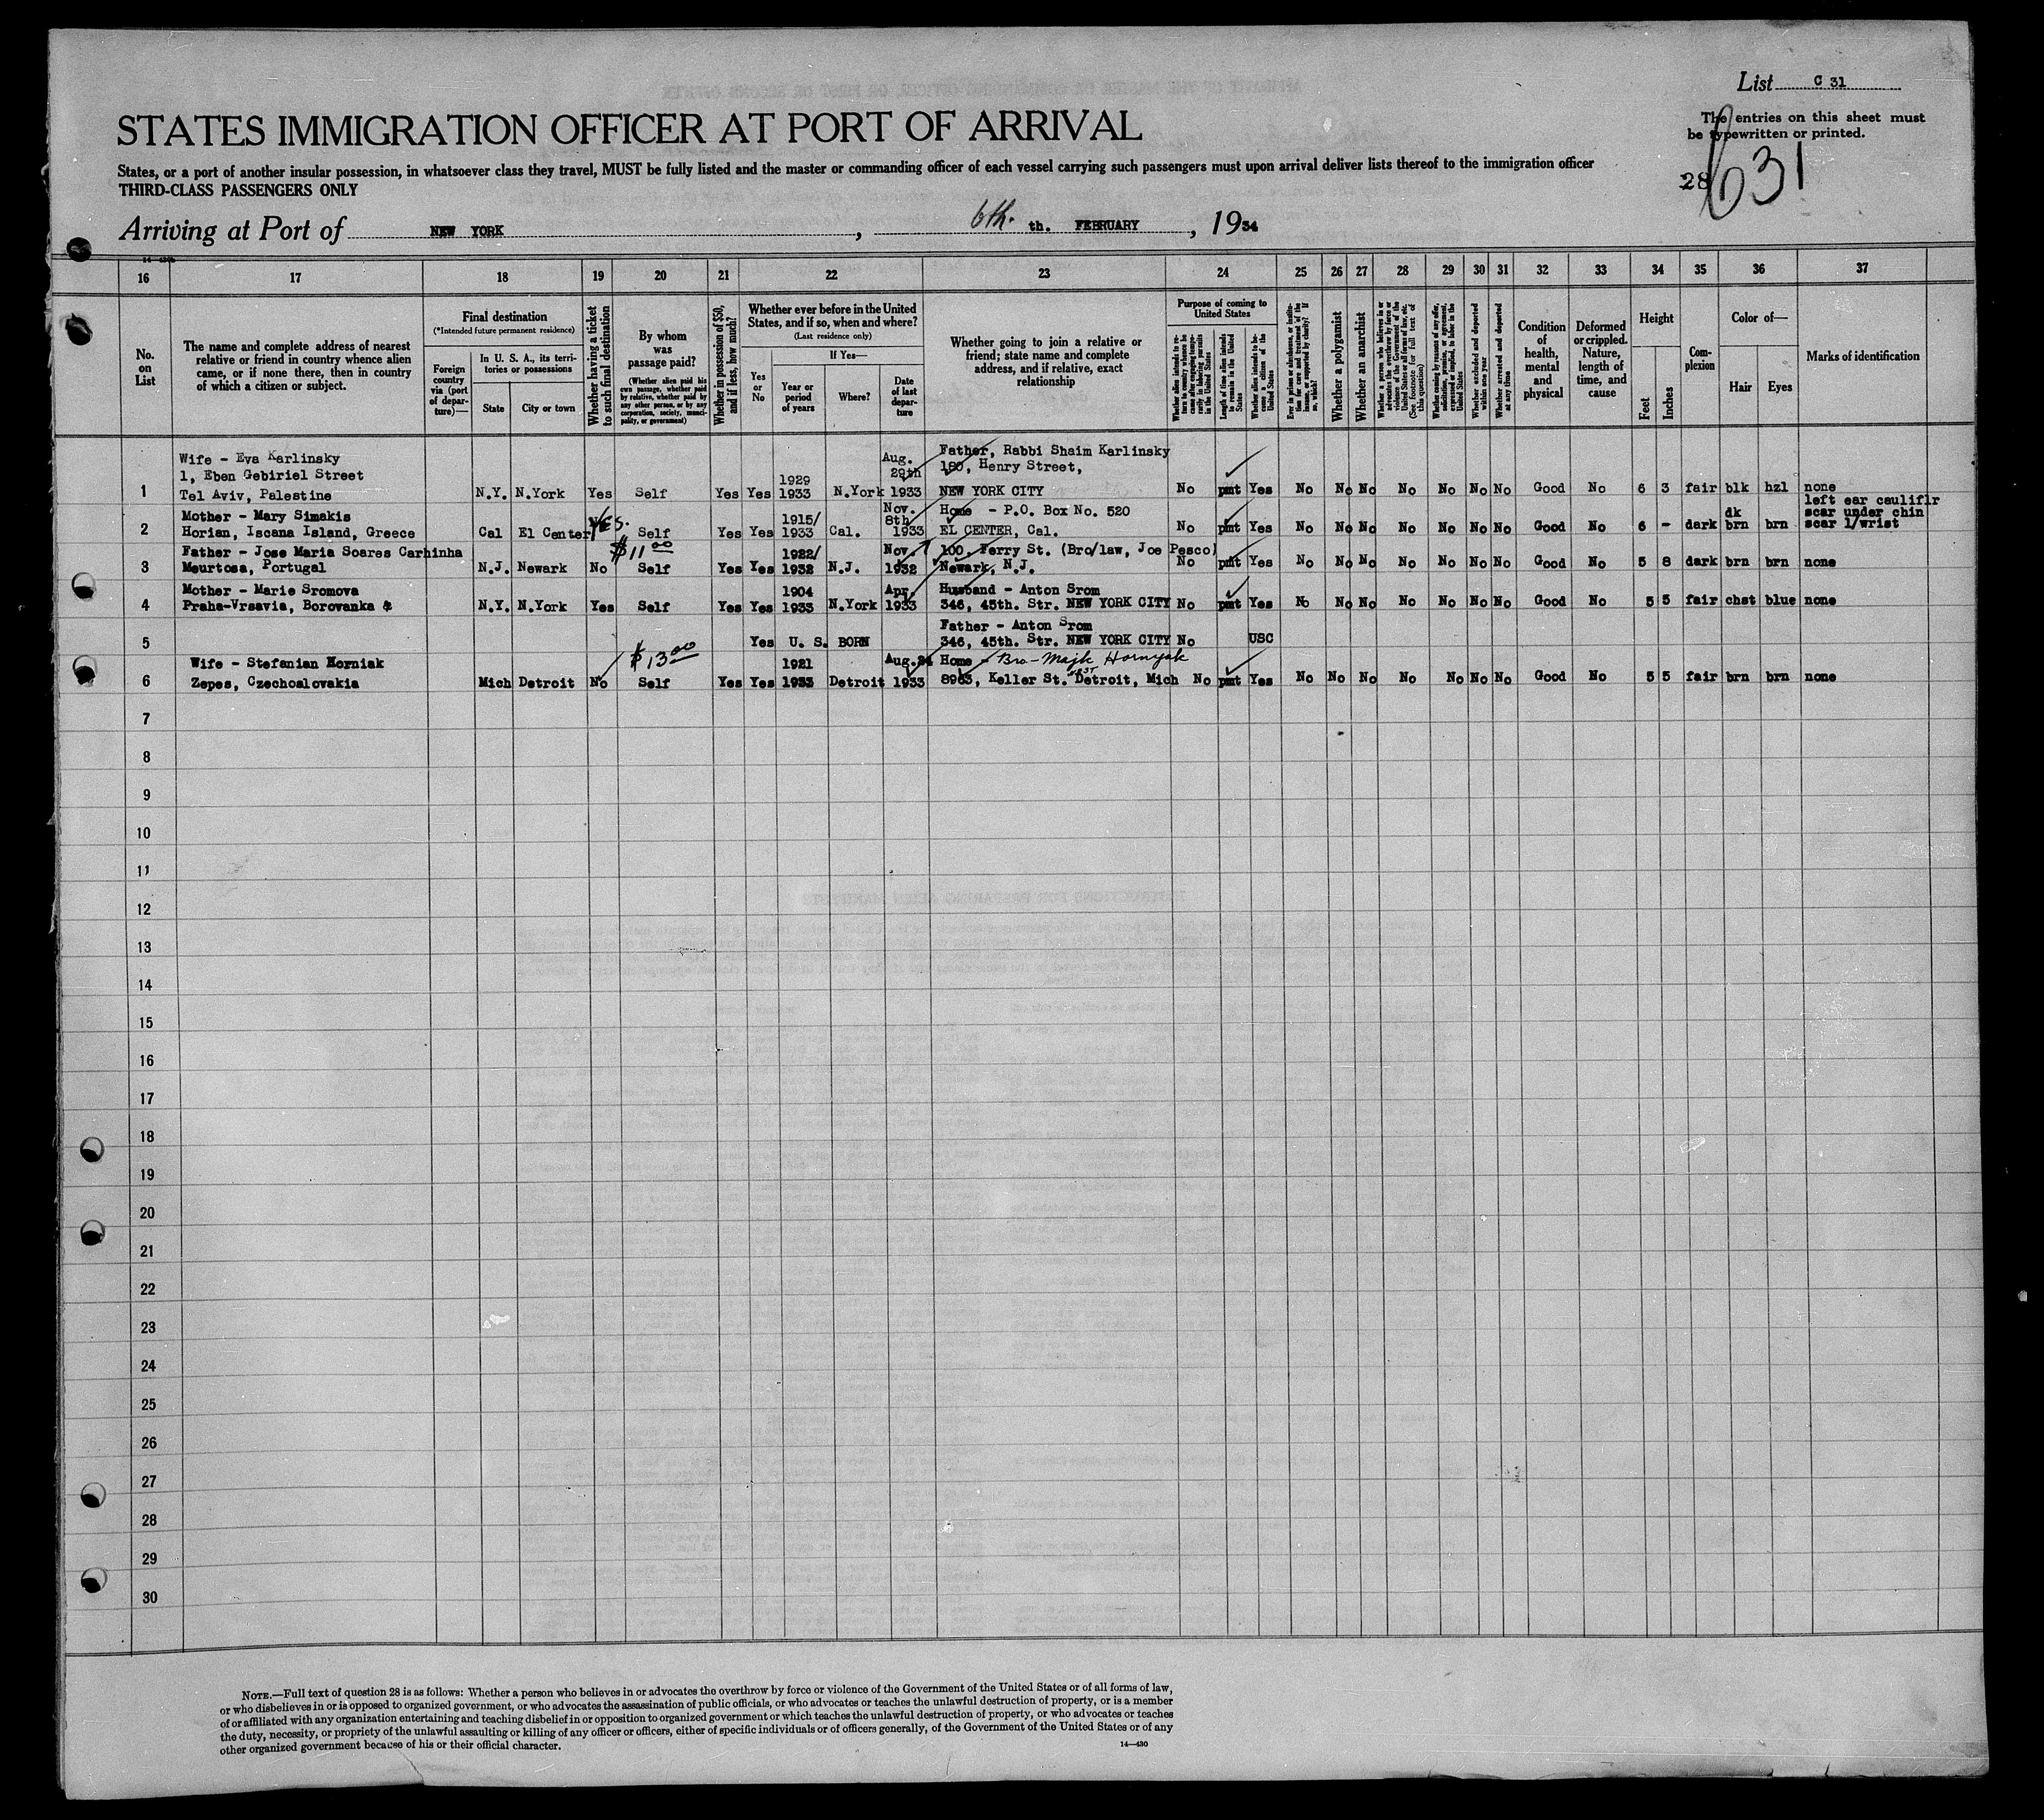 List C 31
STATES IMMIGRATION OFFICER AT PORT OF ARRIVAL
The entries on this sheet must
be typewritten or printed.
States, or a port of another insular possession, in whatsoever class they travel, MUST be fully listed and the master or commanding officer of each vessel carrying such passengers must upon arrival deliver lists thereof to the immigration officer
THIRD-CLASS PASSENGERS ONLY
28
631
Arriving at Port of NEW YORK, 6th. th. FEBRUARY, 1934
16 17 18 19 20 21 22 23 24 25 26 27 28 29 30 31 32 33 34 35 36 37
No. on List
The name and complete address of nearest relative or friend in country whence alien came, or if none there, then in country of which a citizen or subject.
Final destination
(*Intended future permanent residence)
Foreign country via (port of departure)—
In U. S. A., its territories or possessions
State
City or town
Whether having a ticket to such final destination
By whom was passage paid?
(Whether alien paid his own passage, whether paid by relative, whether paid by any other person, or by any corporation, society, municipality, or government)
Whether in possession of $50, and if less, how much?
Whether ever before in the United States, and if so, when and where?
(Last residence only)
Yes or No
If Yes—
Year or period of years
Where?
Date of last departure
Whether going to join a relative or friend; state name and complete address, and if relative, exact relationship
Purpose of coming to United States
Whether alien intends to return to country whence he came after engaging temporarily in laboring pursuits in the United States
Length of time alien intends to remain in the United States
Whether alien intends to become a citizen of the United States
Ever in prison or almshouse, or institution for care and treatment of the insane, or supported by charity? If so, which?
Whether a polygamist
Whether an anarchist
Whether a person who believes in or advocates the overthrow by force or violence of the Government of the United States or all forms of law, etc. (See footnote for full text of this question)
Whether coming by reasons of any offer, solicitation, promise, or agreement, expressed or implied, to labor in the United States
Whether excluded and deported within one year
Whether arrested and deported at any time
Condition of health, mental and physical
Deformed or crippled. Nature, length of time, and cause
Height
Feet
Inches
Complexion
Color of—
Hair
Eyes
Marks of identification
Wife - Eva Karlinsky Aug. Father, Rabbi Shaim Karlinsky
1, Eben Gebiriel Street 1929 29th 180, Henry Street,
1 Tel Aviv, Palestine N.Y. N.York Yes Self Yes Yes 1933 N.York 1933 NEW YORK CITY No pmt Yes No No No No No No No Good No 6 3 fair blk hzl none
Mother - Mary Simakis 1915/ Nov. 8th Home - P.O. Box No. 520 dk left ear cauliflr scar under chin
2 Horian, Iscana Island, Greece Cal El Center Yes. Self Yes Yes 1933 Cal. 1933 EL CENTER, Cal. No pmt Yes No No No No No No No Good No 6 - dark brn brn scar l/wrist
Father - Jose Maria Soares Carhinha $11 00 1922/ Nov. 100. Ferry St. (Bro/law, Joe Pesco)
3 Meurtosa, Portugal N.J. Newark No Self Yes Yes 1932 N.J. 1932 Newark, N.J. No pmt Yes No No No No No No No Good No 5 8 dark brn brn none
Mother - Marie Sromova 1904 Apr. Husband - Anton Srom
4 Praha-Vrsavia, Borovanka & N.Y. N.York Yes Self Yes Yes 1933 N.York 1933 346, 45th. Str. NEW YORK CITY No pmt Yes No No No No No No No Good No 5 5 fair chst blue none
Father - Anton Srom
5 Yes U. S. BORN 346, 45th. Str. NEW YORK CITY No USC
Wife - Stefanian Horniak $13 00 1921 Aug.24 Home - Bro - Majk Hornyak
6 Zepes, Czechoslovakia Mich Detroit No Self Yes Yes 1933 Detroit 1933 8963, Keller St. Detroit, Mich No pmt Yes No No No No No No No Good No 5 5 fair brn brn none
7
8
9
10
11
12
13
14
15
16
17
18
19
20
21
22
23
24
25
26
27
28
29
30
NOTE.—Full text of question 28 is as follows: Whether a person who believes in or advocates the overthrow by force or violence of the Government of the United States or of all forms of law,
or who disbelieves in or is opposed to organized government, or who advocates the assassination of public officials, or who advocates or teaches the unlawful destruction of property, or is a member
of or affiliated with any organization entertaining and teaching disbelief in or opposition to organized government or which teaches the unlawful destruction of property, or who advocates or teaches
the duty, necessity, or propriety of the unlawful assaulting or killing of any officer or officers, either of specific individuals or of officers generally, of the Government of the United States or of any
other organized government because of his or their official character.
14—430